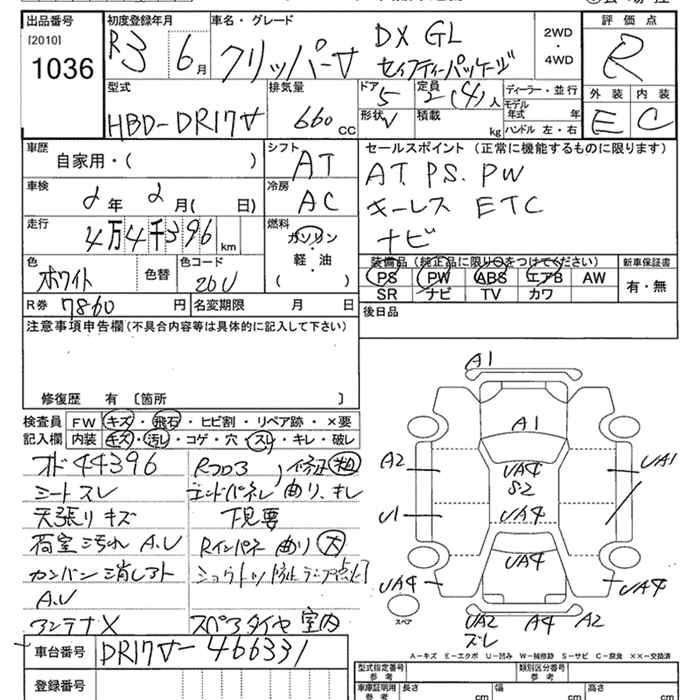 出品番号
[2010]
1036
初度登録年月
R3 6月
車名・グレード
クリッパーV DX GL
セイフティーパッケージ
2WD
・
4WD
評価点
R
型式
HBD-DR17V
排気量
660 CC
ドア 5
形状 V
定員 2(4)人
積載 kg
ディーラー・並行
モデル年式 年
ハンドル 左・右
外装 内装
E C
車歴
自家用・( )
シフト
AT
車検
2年 2月( 日)
冷房
AC
走行
4万4千396 km
燃料
ガソリン
・
軽・油
( )
色
ホワイト
色替
色コード
26U
R券 7860 円
名変期限 月 日
セールスポイント (正常に機能するものに限ります)
AT PS. PW
キーレス ETC
ナビ
装備品 (純正品に限り○をつけてください)
新車保証書
PS PW ABS エアB AW
SR ナビ TV カワ
有・無
後日品
注意事項申告欄 (不具合内容等は具体的に記入して下さい)
修復歴 有 〔箇所 〕
検査員
記入欄
FW キズ・飛石・ヒビ割・リペア跡・×要
内装 キズ・汚レ・コゲ・穴・スレ・キレ・破レ
オド 44396
シートスレ
天張りキズ
荷室 汚れ A.U
カンバン消しアト
A.U
アンテナX
エンドパネル 曲り、キレ
下見要
Rインパネ 曲り 大
スペアタイヤ 室内
車台番号 DR17V-466331
登録番号
A1
A1
A2
UA4
S2
UA1
U1
UA4
UA4
UA4
UA4
スペア
UA2
ズレ
A4
A2
A-キズ E-エクボ U-凹み W-補修跡 S-サビ C-腐食 XX-交換済
型式指定番号
参考
類別区分番号
参考
車庫証明用
参考
長さ cm
幅 cm
高さ cm